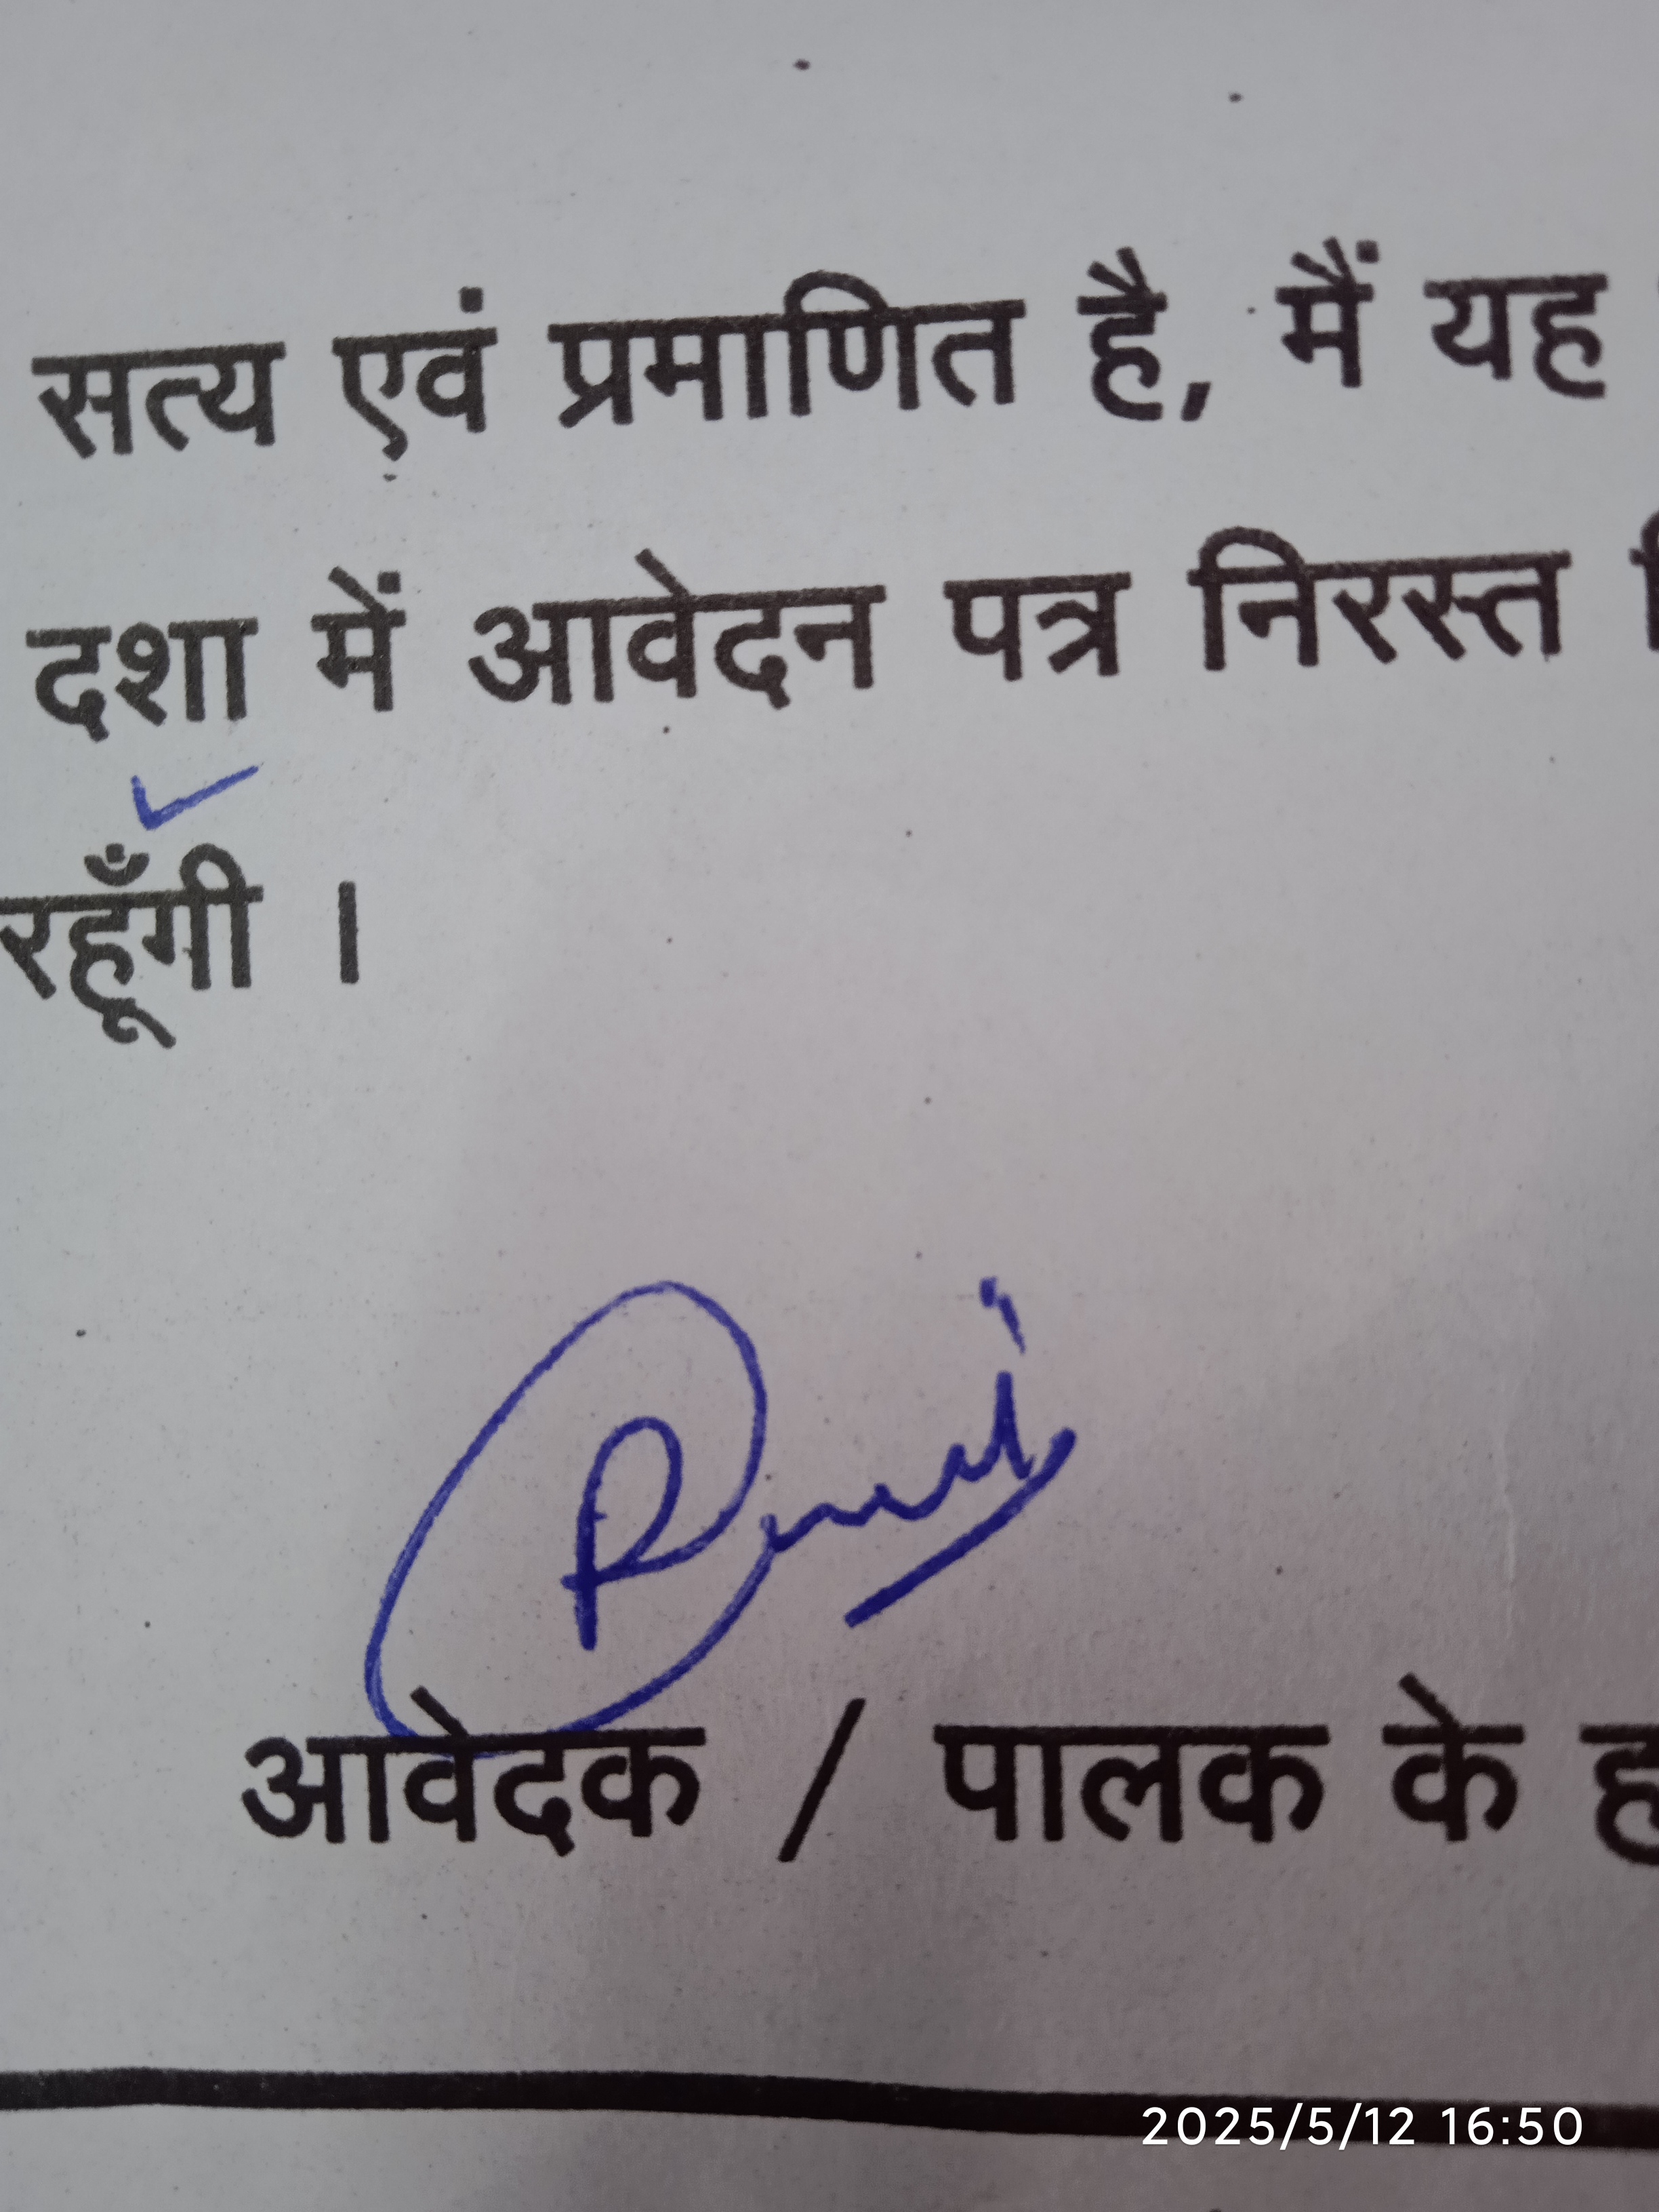 सत्य एवं प्रमाणित है, मैं यह
दशा में आवेदन पत्र निरस्त
रहूँगी ।
आवेदक / पालक के
2025/5/12 16:50